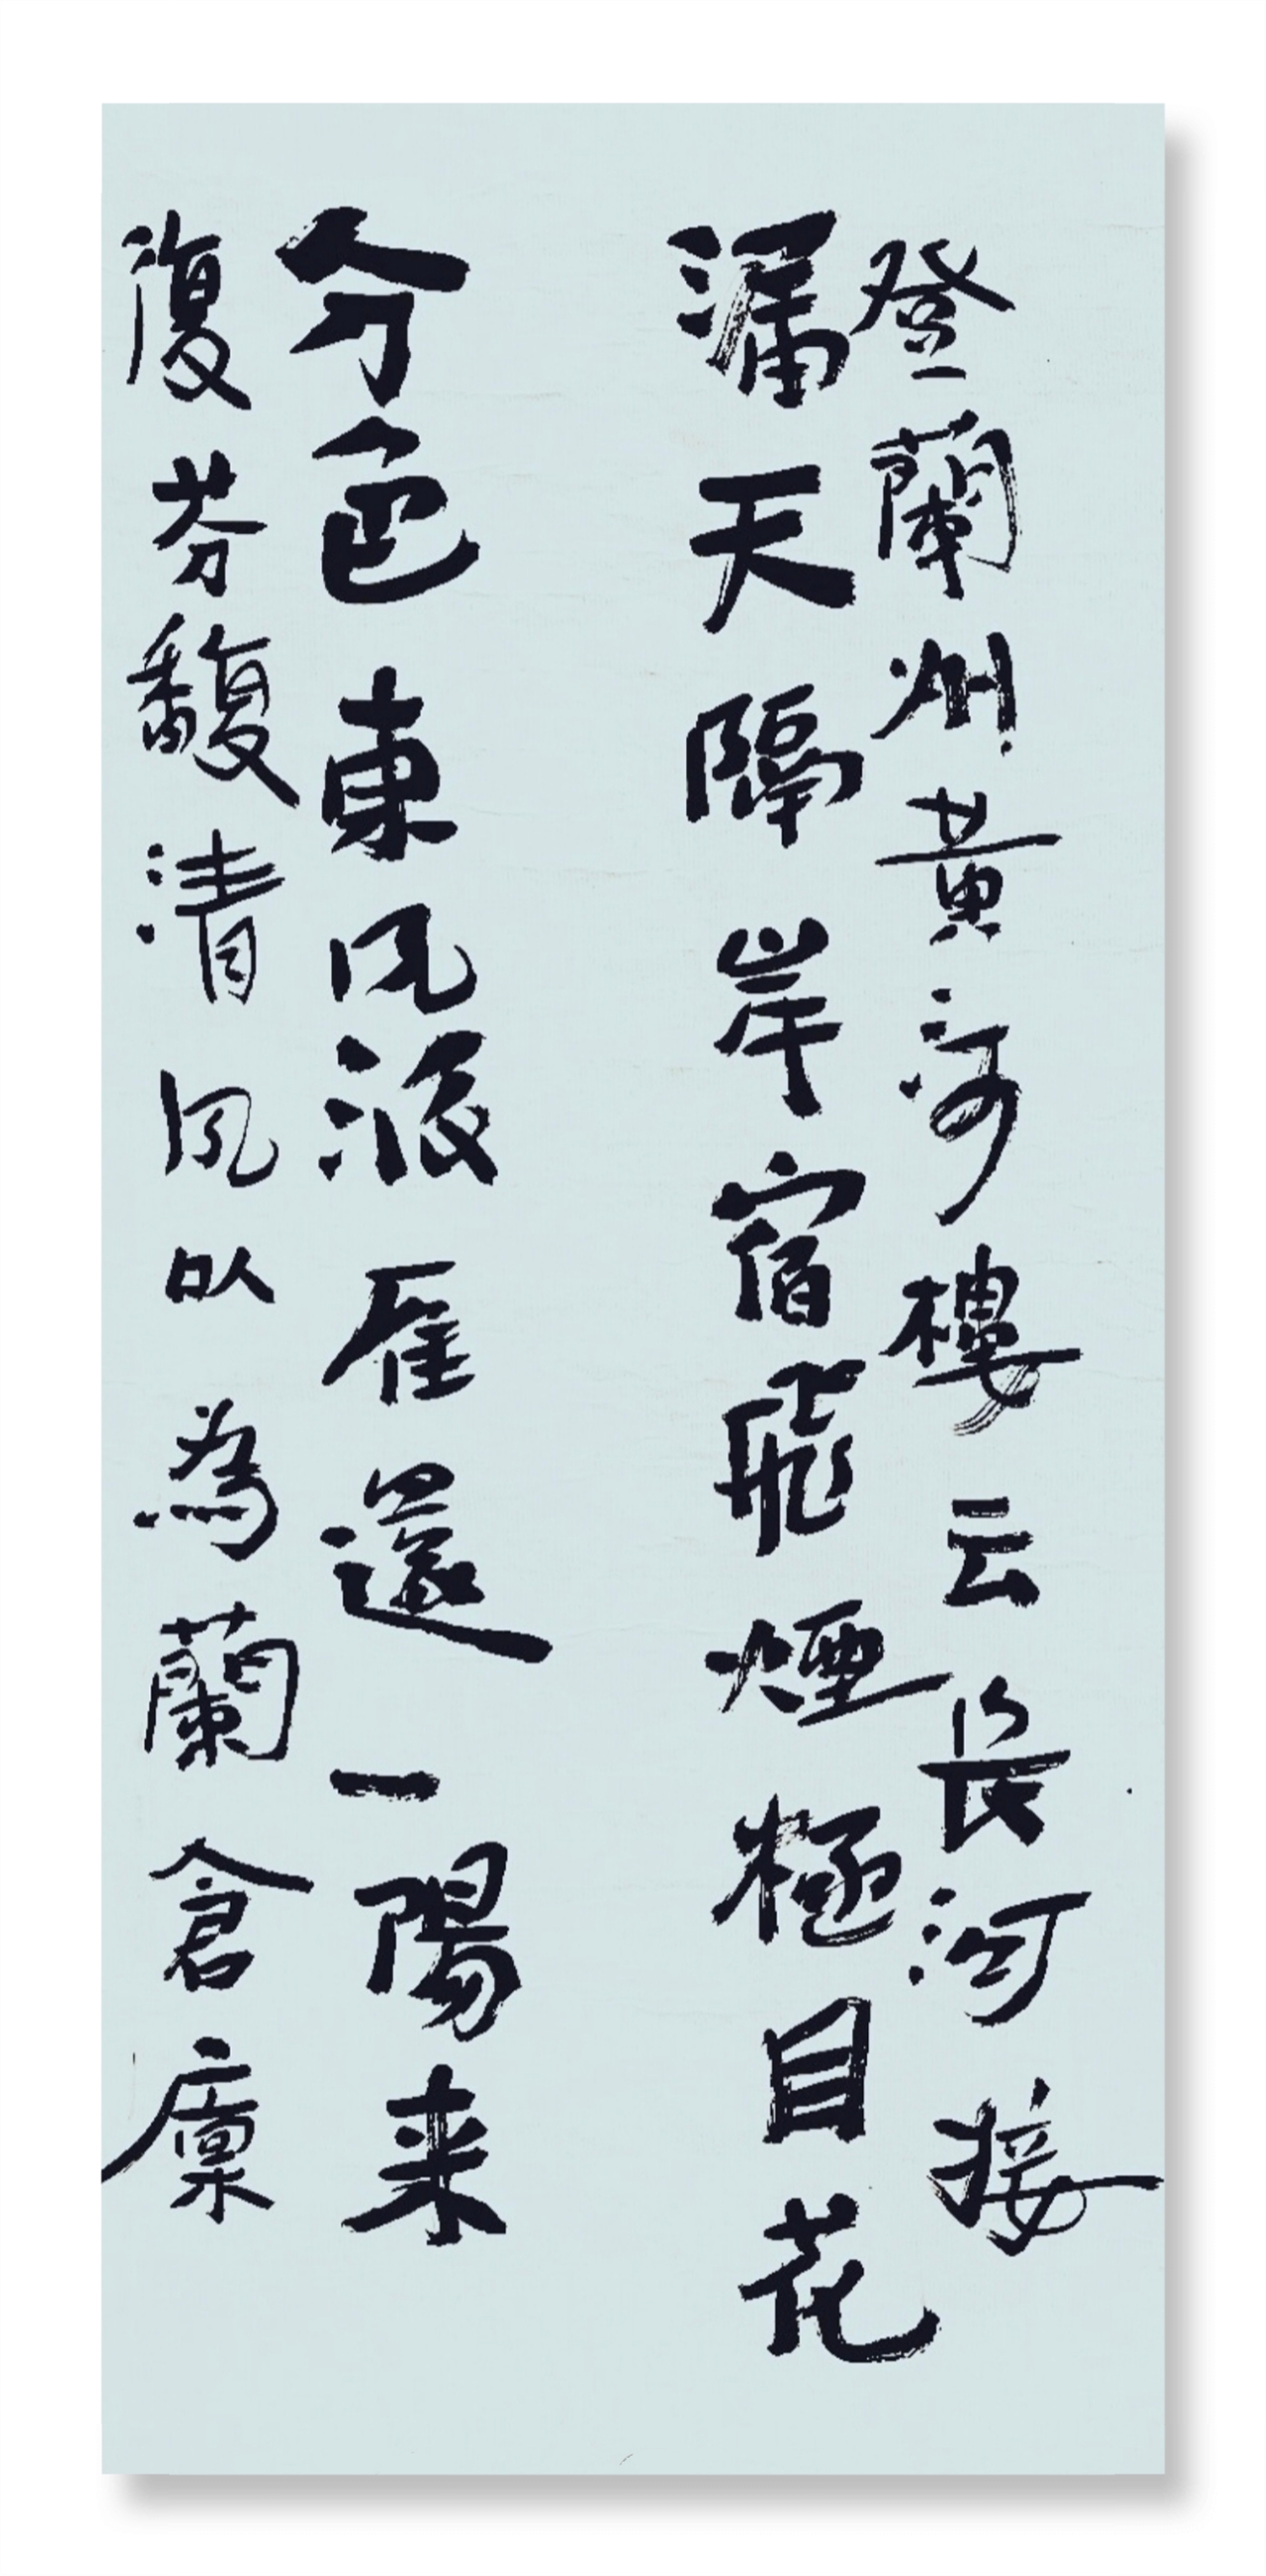 登蘭州黄河樓云長河接
漏天隔岸宿飛煙極目花
分色東风派雁還一陽来
復芬馥清风以為蘭倉廩